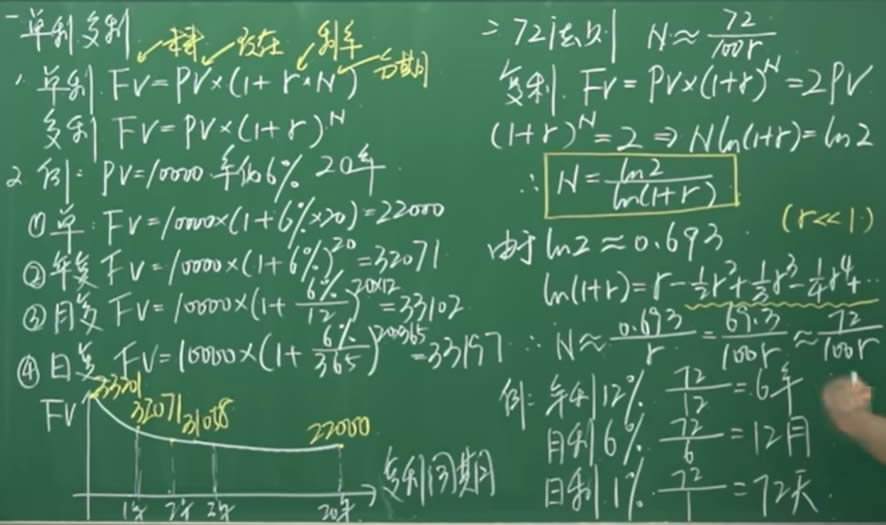 一 单利复利
未来 现在 利率 分期
1. 单利 FV=PV×(1+r×N)
复利 FV=PV×(1+r)^N
2. 例: PV=10000 年化6% 20年
①单: FV=10000×(1+6%×20)=22000
②年复 FV=10000×(1+6%)^20=32071
③月复 FV=10000×(1+6%/12)^20×12=33102
④日复 FV=10000×(1+6%/365)^20×365=33197
FV 33201 32071 31038 22000
1年 2年 20年 复利周期
二 72法则 N≈72/100r
复利 FV=PV×(1+r)^N=2PV
(1+r)^N=2⇒Nln(1+r)=ln2
∴ N=ln2/ln(1+r)
(r<<1)
由于ln2≈0.693
ln(1+r)=r-1/2r²+1/3r³-1/4r⁴+…
∴N≈0.693/r=69.3/100r≈72/100r
例: 年利12% 72/12=6年
月利6% 72/6=12月
日利1% 72/1=72天